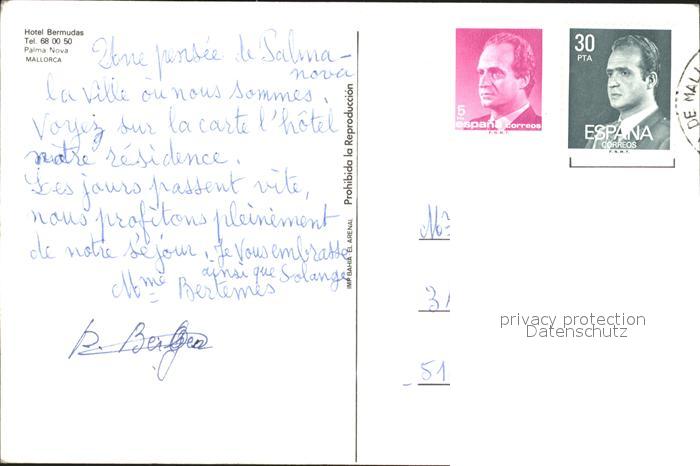 Hotel Bermudas
Tel. 68 00 50
Palma Nova
MALLORCA
Une pensée de Palma-
nova
la ville où nous sommes.
Voyez sur la carte l'hôtel
notre résidence.
Les jours passent vite,
nous profitons pleinement
de notre séjour. Je vous embrasse
ainsi que Solange
Mme Bertemes
Prohibida la Reproducción
IMP. BAHIA EL ARENAL
5
españa correos
F.N.M.T.
30
PTA
ESPAÑA
CORREOS
F.N.M.T.
DE MALL
Mr
51
privacy protection
Datenschutz